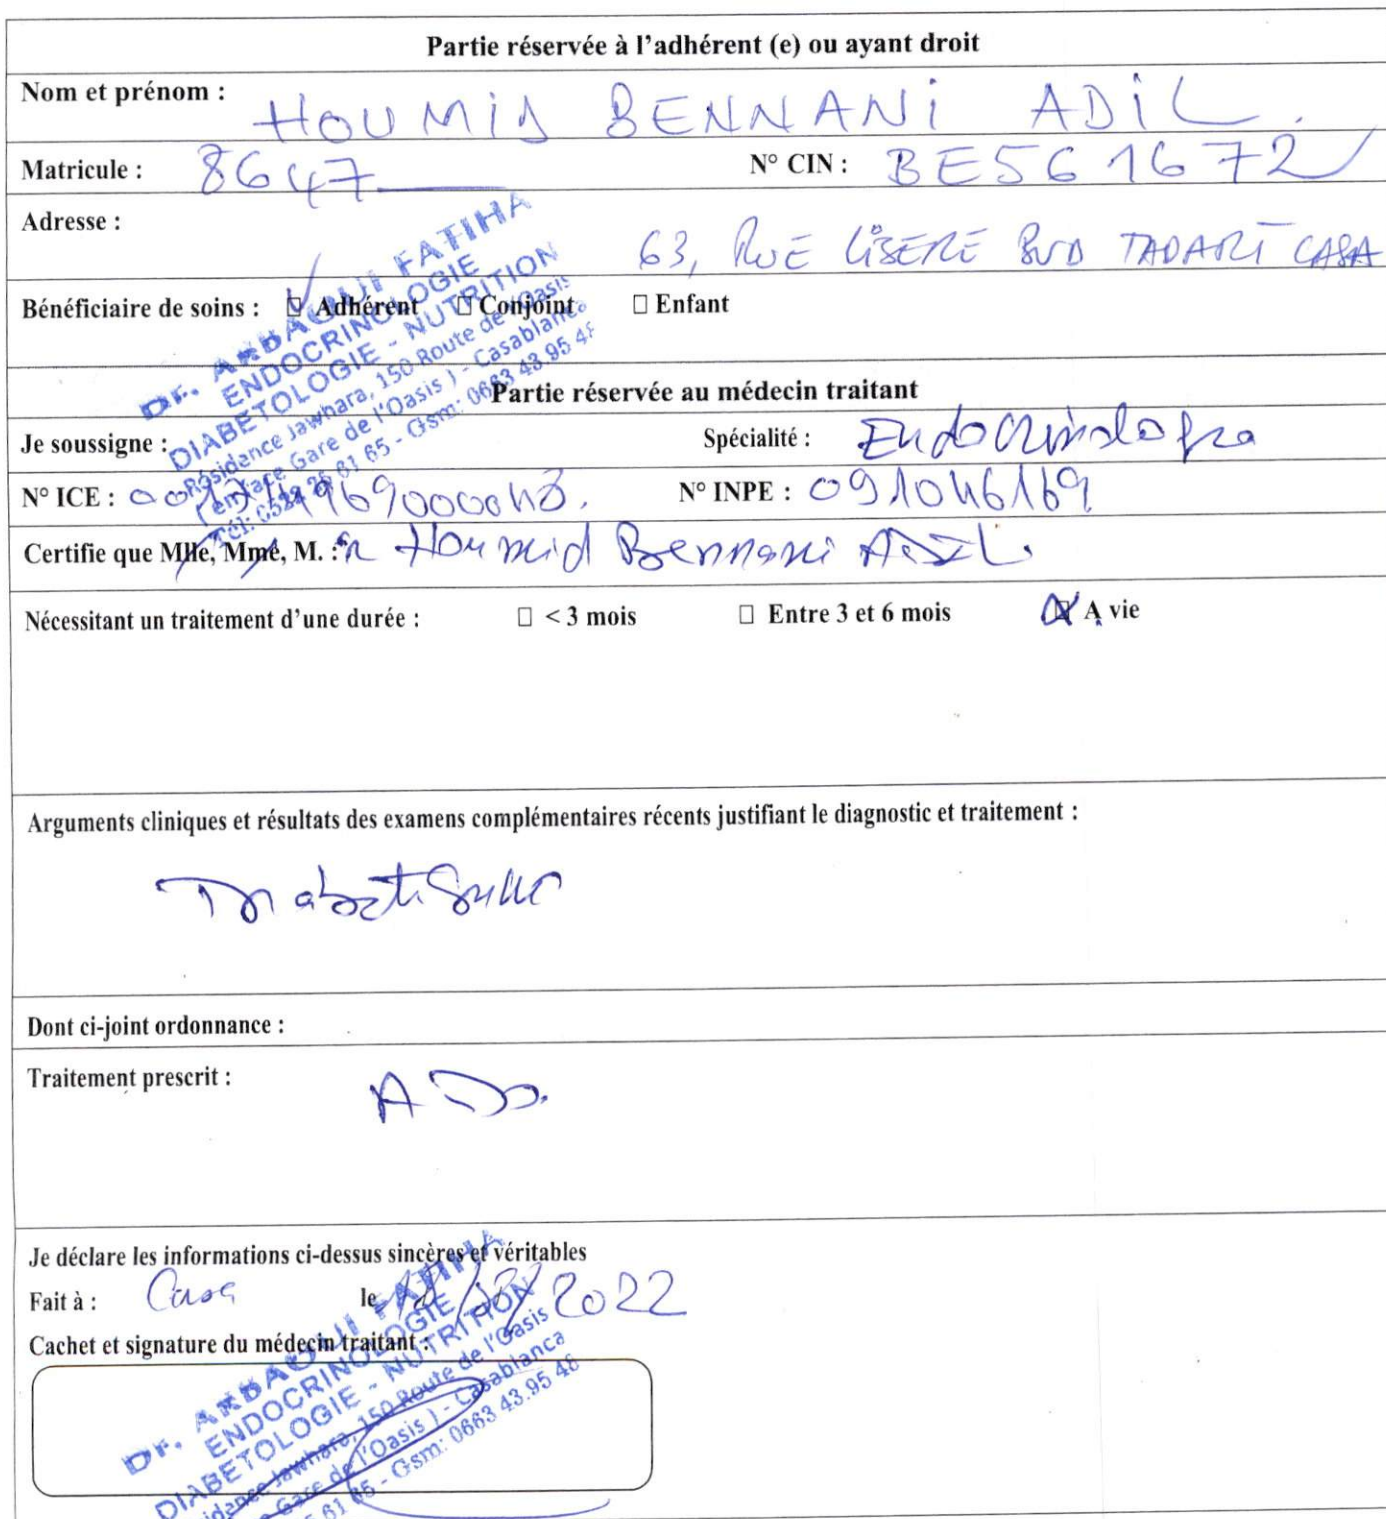 Partie réservée à l'adhérent (e) ou ayant droit
Nom et prénom : HOUMID BENNANI ADIL.
Matricule : 8647 N° CIN : BE561672
Adresse : 63, RUE CASA
Bénéficiaire de soins : ☑ Adhérent □ Conjoint □ Enfant
Dr. ARBAOUI FATIHA
ENDOCRINOLOGIE
DIABETOLOGIE - NUTRITION
Résidence Jawhara, 150 Route de l'Oasis
( en face Gare de l'Oasis ) - Casablanca
Tél: 0522 25 61 65 - Gsm: 0663 43.95 48
Partie réservée au médecin traitant
Je soussigne : Spécialité :
N° ICE : N° INPE : 091046169
Certifie que Mlle, Mme, M. : Houmid Bennani Adil.
Nécessitant un traitement d'une durée : □ < 3 mois □ Entre 3 et 6 mois ☒ A vie
Arguments cliniques et résultats des examens complémentaires récents justifiant le diagnostic et traitement :
Dont ci-joint ordonnance :
Traitement prescrit : ADO.
Je déclare les informations ci-dessus sincères et véritables
Fait à : Casa le 2022
Cachet et signature du médecin traitant :
Dr. ARBAOUI FATIHA
ENDOCRINOLOGIE
DIABETOLOGIE - NUTRITION
idence Jawhara, 150 Route de l'Oasis
Gare de l'Oasis ) - Casablanca
61 65 - Gsm: 0663 43.95 48